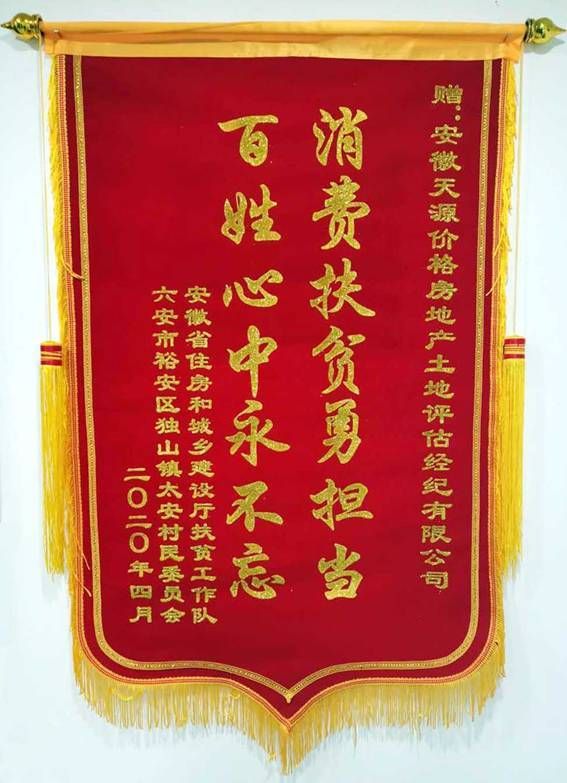 赠：安徽天源价格房地产土地评估经纪有限公司
消费扶贫勇担当
百姓心中永不忘
安徽省住房和城乡建设厅扶贫工作队
六安市裕安区独山镇太安村民委员会
二〇二〇年四月